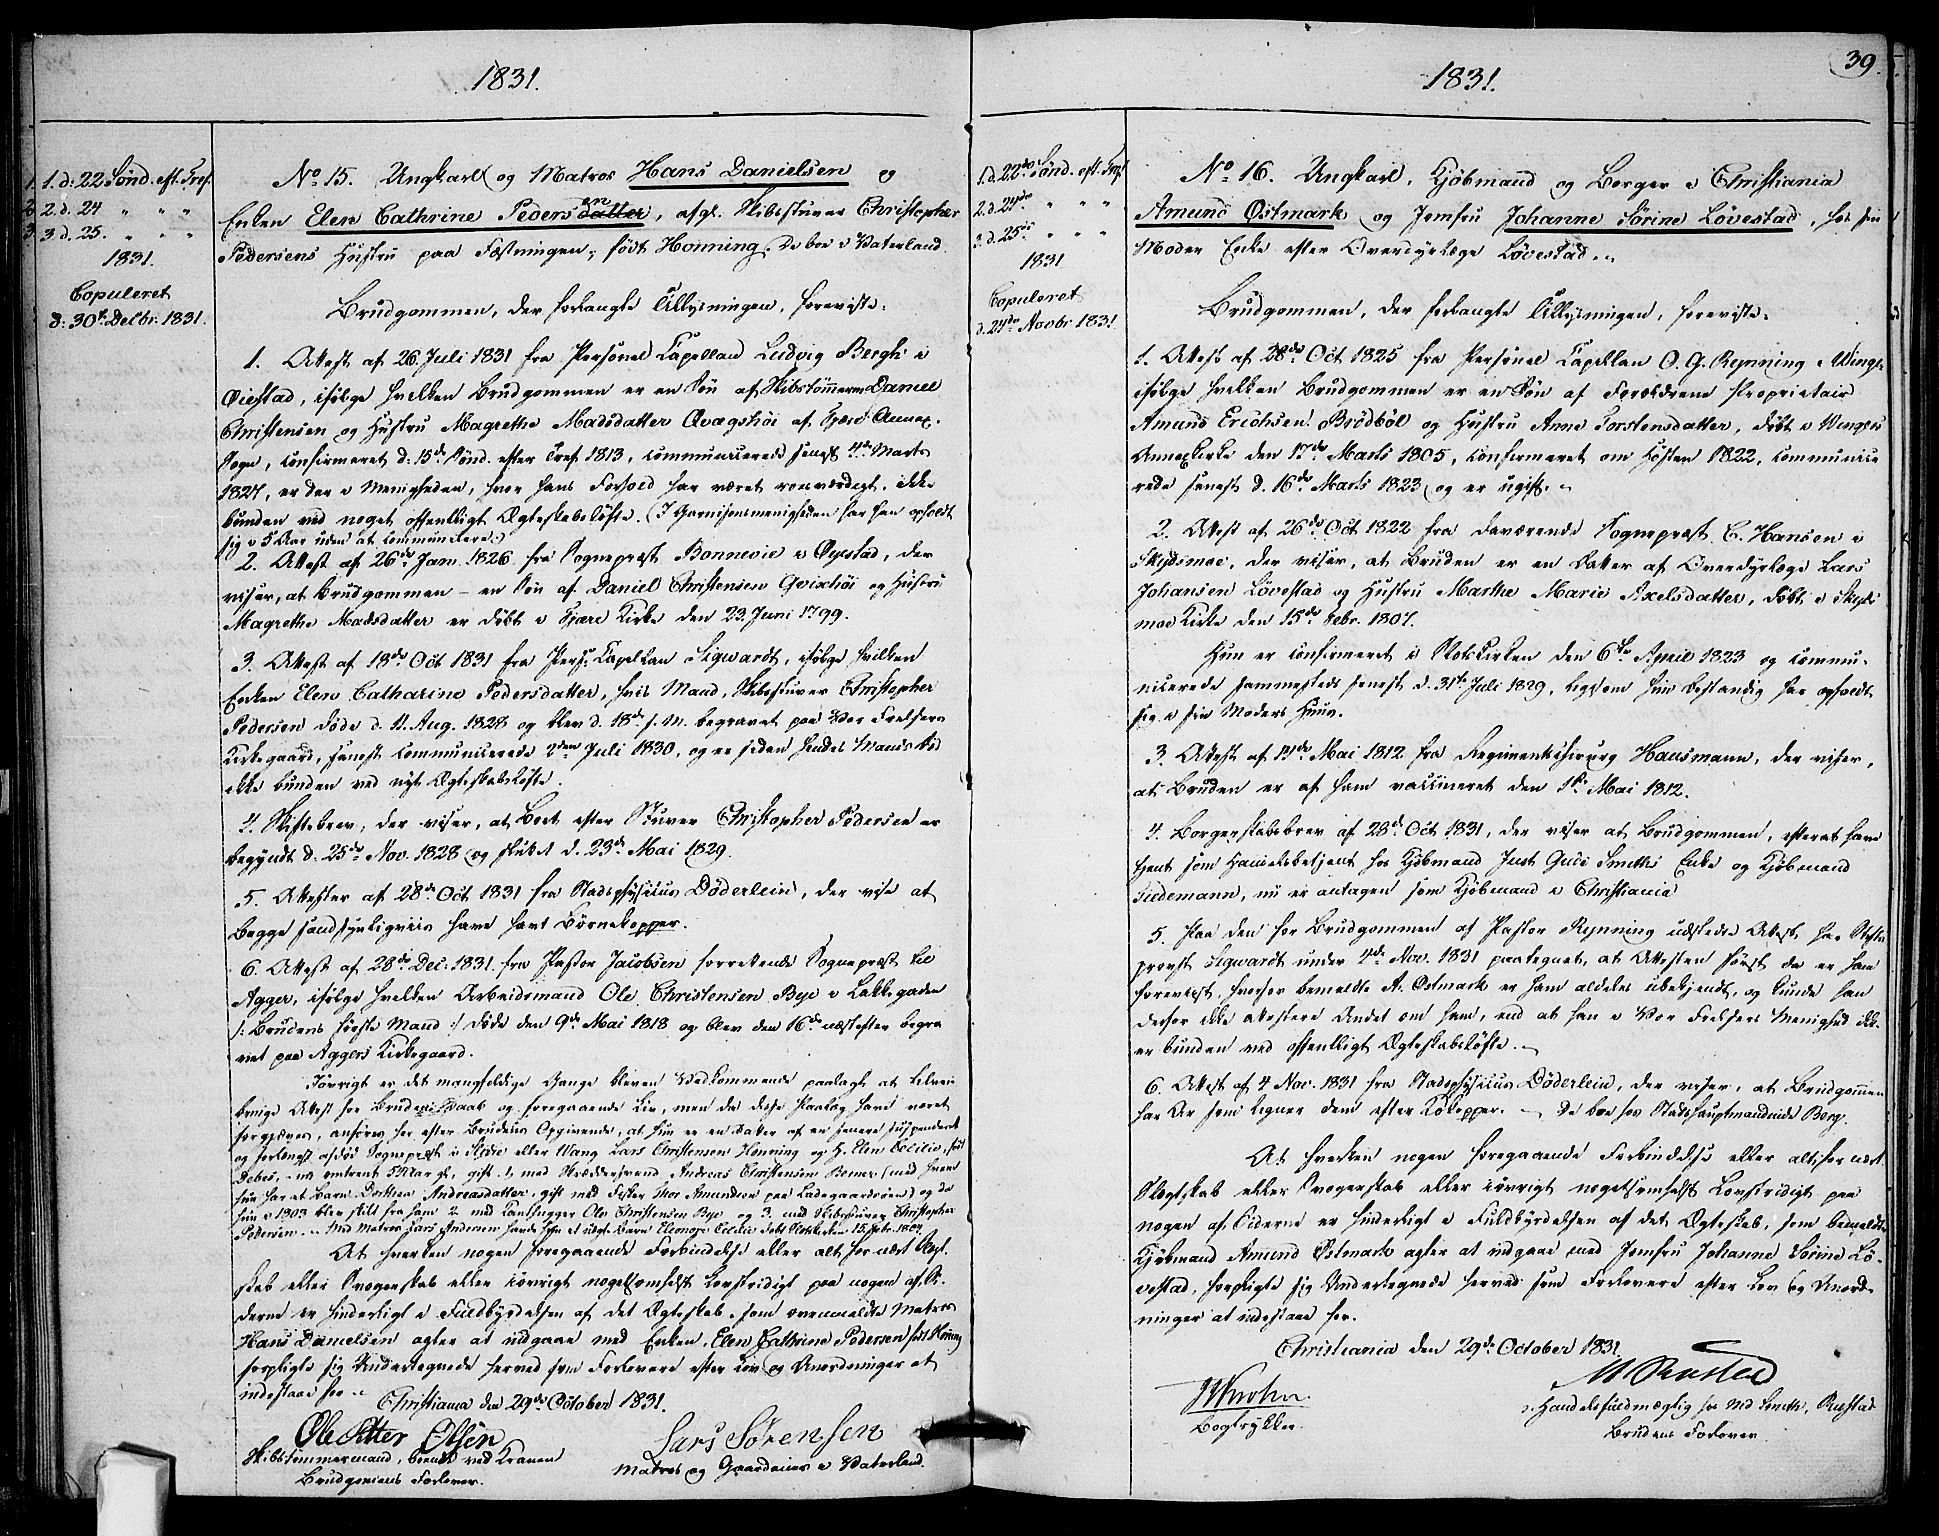 1831.
1. 1. d. 22 Sönd. eft. Tref.
2. 2. d. 24 " " "
3. 3. d. 25. " " "
1831.
Copuleret
d. 30te Decbr. 1831.
No 15. Ungkarl og Matros Hans Danielsen og
Enken Elen Cathrine Pedersdatter en, afgl. Skibsstuver Christopher
Pedersens Hustru paa Fæstningen, født Honning. De boe i Vaterland.
Brudgommen, der forlangte Tillysningen, foreviste:
1. Attest af 26. Juli 1831 fra Personel Capellan Ludvig Bergh i
Øiestad, ifølge hvilken Brudgommen er en Søn af Skibstømmerm. Daniel
Christensen og Hustru Magrethe Madsdatter Qvægshöi af Fjære Annex.
Sogn, confirmeret d. 15de Sönd. efter Tref. 1813, communicerede senest 4de Marts
1827, er der i Menigheden, hvor hans Forhold har været roesværdigt, ikke
bunden ved noget offentligt Ægteskabsløfte. (I Garnisonsmenigheden har han opholdt
sig i 5 Aar uden at communicere.)
2. Attest af 26de Jan. 1826 fra Sogneprest Bonnevie i Øyestad, der
viser, at Brudgommen – en Søn af Daniel Christensen Qvixhöi og Hustru
Magrethe Madsdatter er döbt i Fjære Kirke den 23. Juni 1799.
3. Attest af 13de Oct 1831 fra Pers. Capellan Sigwardt, ifølge hvilken
Enken Elen Catharine Pedersdatter, hvis Mand, Skibsstuver Christopher
Pedersen døde d. 11. Aug. 1828 og blev d. 18de s. M. begravet paa Vor Frelsers
Kirkegaard, senest communicerede 2den Juli 1830, og er siden hendes Mands Død
ikke bunden ved nyt Ægteskabsløfte.
4. Skiftebrev, der viser, at Boet efter Stuver Christopher Pedersen er
begyndt d. 25de Nov. 1828 og sluttet d. 23de Mai 1829.
5. Attester af 28de Oct 1831 fra Stadsphysicus Döderlein, der vise at
begge sandsynligviis have havt Børnekopper.
6. Attest af 28de Dec. 1831. fra Pastor Jacobsen forrettende Sogneprest til
Agger, ifølge hvilken Arbeidsmand Ole Christensen Bye i Lakkegaden
/: Brudens første Mand :/ døde den 9de Mai 1818 og blev den 16de næstefter begra
vet paa Aggers Kirkegaard.
Iövrigt er det mangfoldige Gange bleven Vedkommende paalagt at tilveie
bringe Attest for Brudens Daab og foregaaende Liv, men da disse Paalæg have været
forgjeves, anføres her efter Brudens Opgivende, at hun er en Datter af en senere suspenderet
og forlængst afdød Sogneprest i Slidre eller Wang Lars Christensen Honning og H. Elen Cecilie, født
Debes, nu omtrent 52 Aar gl., gift 1, med Skræddersvend Andreas Christensen Bemer (med hvem
hun har et Barn Dorthea Andreasdatter, gift med Fisker Thor Amundsen paa Ladegaardsøen) og da
hun i 1803 blev skilt fra ham 2. med Tanthugger Ole Christensen Bye og 3. med Skibsstuver Christopher
Pedersen. – Med Matros Lars Andersen havde hun et uægt. Barn Elenore Cecilie døbt Slotskirken 15. Febr. 1807.
At hverken nogen foregaaende Forbindelse eller alt for nært Slægt-
skab eller Svogerskab eller iøvrigt nogetsomhelst Lovstridigt paa nogen af Si-
derne er hinderligt i Fuldbyrdelsen af det Ægteskab, som ovenmeldte Matros
Hans Danielsen agter at indgaae med Enken Elen Cathrine Pedersen født Honning
forpligte sig Undertegnede herved som Forlovere efter Lov og Anordninger at
indestaae for. –
Christiania den 29de October 1831.
Ole Petter Olsen
Skibstømmermand, boende ved Kranen
Brudgommens Forlover.
Lars Sörensen
Matros og Gaardeier i Vaterland.
39.
1831.
1. d. 22de Sönd. eft. Tref.
2. d. 24de " " "
3. d. 25de " " "
1831
Copuleret
d. 24de Novbr 1831
No 16. Ungkarl, Kjöbmand og Borger i Christiania
Amund Östmark og Jomfru Johanne Sörine Lövestad, hos sin
Moder Enke efter Overdyrlæge Lövestad. –
Brudgommen, der forlangte Tillysningen, foreviste:
1. Attest af 28de Oct. 1825 fra Personel Capellan O. G. Rynning i Winger
ifølge hvilken Brudgommen er en Søn af Forældrene Proprietair
Amund Erichsen Brödböl og Hustru Anne Torstensdatter, döbt i Wingers
Annexkirke den 17de Marts 1805, confirmeret om Høsten 1822, communice
rede senest d. 16de Marts 1823 og er ugift. –
2. Attest af 26de Oct 1822 fra daværende Sogneprest C. Hansen i
Skydsmoe, der viser, at Bruden er en Datter af Overdyrlæge Lars
Johansen Lövestad og Hustru Marthe Marie Axelsdatter, döbt i Skyds
moe Kirke den 15de Febr. 1807.
Hun er confirmeret i Slotskirken den 6te April 1823 og commu-
nicerede sammesteds senest d. 31te Juli 1829, ligesom hun bestandig har opholdt
sig i sin Moders Huus.
3. Attest af 11de Mai 1812 fra Regimentschirurg Hausmann, der viser,
at Bruden er af ham vaccineret den 1te Mai 1812.
4. Borgerskabsbrev af 28de Oct 1831, der viser at Brudgommen, efterat have
tjent som Handelsbetjent hos Kjöbmand Just Gude Smiths Enke og Kjöbmand
Tiedemann, nu er antagen som Kjöbmand i Christiania
5. Paa den for Brudgommen af Pastor Rynning udstedte Attest har Stifts
provst Sigwardt under 4de Nov. 1831 paategnet, at Attesten først da er ham
foreviist, hvorfor bemeldte A. Östmark er ham aldeles ubekjendt, og kunde han
derfor ikke attestere Andet om ham, end at han i Vor Frelsers Menighed ikke
er bunden ved offentligt Ægteskabsløfte. –
6. Attest af 4 Nov. 1831 fra Stadsphysicus Döderlein, der viser, at Brudgommen
har Ar som ligner dem efter Kokopper. – De boe hos Stadshauptmandinde Berg.
At hverken nogen foregaaende Forbindelse eller altfor nært
Slægtskab eller Svogerskab eller iøvrigt nogetsomhelst Lovstridigt paa
nogen af Siderne er hinderligt i Fuldbyrdelsen af det Ægteskab, som bemeldte
Kjöbmand Amund Östmark agter at indgaae med Jomfru Johanne Sörine Lö-
vestad, forpligte sig Undertegnede herved som Forlovere efter Lov og Anord-
ninger at indestaae for.
Christiania den 29de October 1831.
Bogtrykker.
Handelsfuldmægtig hos Md Smith, Ruestad
Brudens Forlover